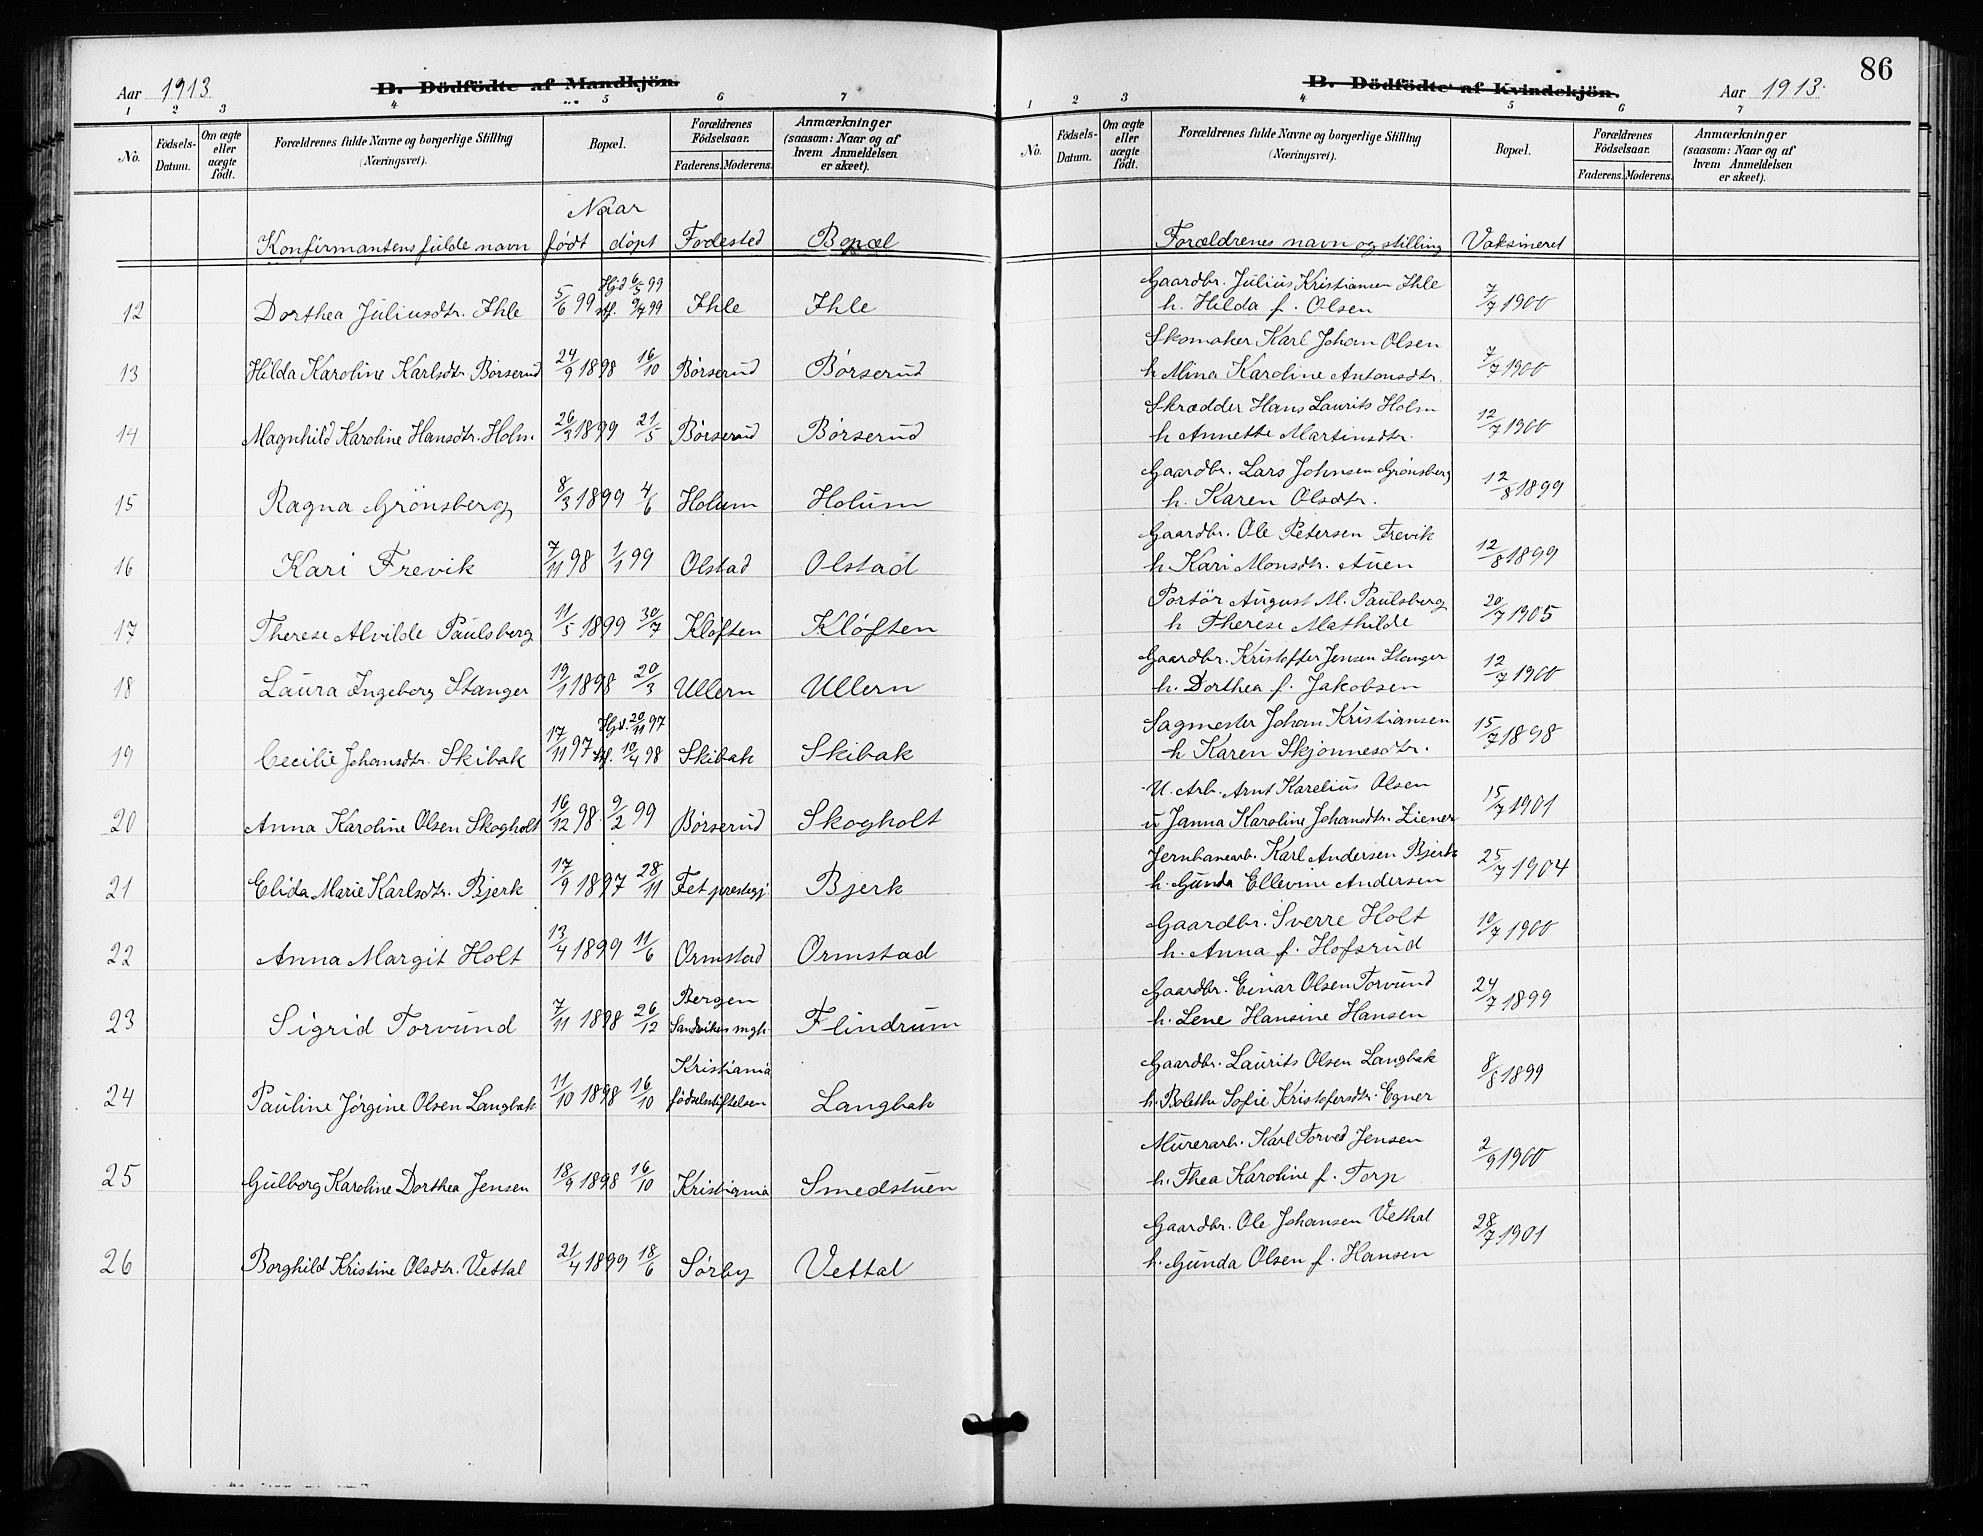 Aar 1913
B. Dödfödte af Mandkjön.
1 2 3 4 5 6 7
No.
Födsels-Datum.
Om ægte eller uægte födt.
Forældrenes fulde Navne og borgerlige Stilling (Næringsvei).
Bopæl.
Forældrenes Födselsaar.
Faderens. Moderens.
Anmærkninger (saasom: Naar og af hvem Anmeldelsen er skeet).
Naar
Konfirmantens fulde navn født døpt Fødested Bopæl
12 Dorthea Juliusdtr. Ihle 5/6 99 Hjd 6/5 99 stf. 9/7 99 Ihle Ihle
13 Hilda Karoline Karlsdtr. Børserud 24/9 1898 16/10 Børserud Børserud
14 Magnhild Karoline Hansdtr. Holm. 26/3 1899 21/5 Børserud Børserud
15 Ragna Grønsberg 8/3 1899 4/6 Holum Holum
16 Kari Frevik 7/11 98 1/1 99 Olstad Olstad
17 Therese Alvilde Paulsberg 11/5 1899 30/7 Kløften Kløften
18 Laura Ingeborg Stanger 19/1 1898 20/3 Ullern Ullern
19 Cecilie Johansdtr. Skibak 17/11 97 Hjd. 20/11 97 stf. 10/4 98 Skibak Skibak
20 Anna Karoline Olsen Skogholt 16/12 98 9/2 99 Børserud Skogholt
21 Elida Marie Karlsdtr. Bjerk 17/9 1897 28/11 Fet prestegj. Bjerk
22 Anna Margit Holt 13/4 1899 11/6 Ormstad Ormstad
23 Sigrid Torvund 7/11 1898 26/12 Bergen Sandvikens mgh. Flindrum
24 Pauline Jørgine Olsen Langbak 11/10 1898 16/10 Kristiania fødselsstiftelsen Langbak
25 Gulborg Karoline Dorthea Jensen 18/9 1898 16/10 Kristiania Smedstuen
26 Borghild Kristine Olsdtr. Vettal 21/4 1899 18/6 Sørby Vettal
86
B. Dödfödte af Kvindekjön.
Aar 1913.
1 2 3 4 5 6 7
No.
Födsels-Datum.
Om ægte eller uægte födt.
Forældrenes fulde Navne og borgerlige Stilling (Næringsvei).
Bopæl.
Forældrenes Födselsaar.
Faderens. Moderens.
Anmærkninger (saasom: Naar og af hvem Anmeldelsen er skeet).
Forældrenes navn og stilling Vaksineret
Gaardbr. Julius Kristiansen Ihle
h. Hilda f. Olsen 7/7 1900
Skomaker Karl Johan Olsen
h Mina Karoline Antonsdtr. 7/7 1900
Skrædder Hans Laurits Holm
h Annette Martinsdtr. 12/7 1900
Gaardbr. Lars Johnsen Grønsberg
h. Karen Olsdtr. 12/8 1899
Gaardbr. Ole Petersen Frevik
h Kari Monsdtr. Auen 12/8 1899
Portör August M. Paulsberg
h Therese Mathilde 20/7 1905
Gaardbr. Kristoffer Jensen Stanger
h. Dorthea f. Jakobsen 12/7 1900
Sagmester Johan Kristiansen
h Karen Skjønnesdtr. 15/7 1898
U. Arb. Arnt Karelius Olsen
u Janna Karoline Johansdtr. Liener 15/7 1901
Jernbanearb. Karl Andersen Bjerk
h. Gunda Ellevine Andersen 25/7 1904
Gaardbr. Sverre Holt
h. Anna f. Hofsrud 10/7 1900
Gaardbr. Einar Olsen Torvund
h. Lene Hansine Hansen 24/7 1899
Gaardbr. Laurits Olsen Langbak
h. Bolethe Sofie Kristofersdtr. Egner 8/8 1899
Murerarb. Karl Torved Jensen
h. Thea Karoline f. Torp 2/9 1900
Gaardbr. Ole Johansen Vethal
h. Gunda Olsen f. Hansen 28/7 1901